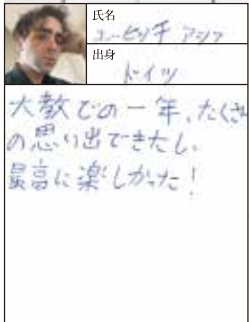 氏名
出身
ドイツ
大教での一年、たくさん
の思い出できたし、
最高に楽しかった！